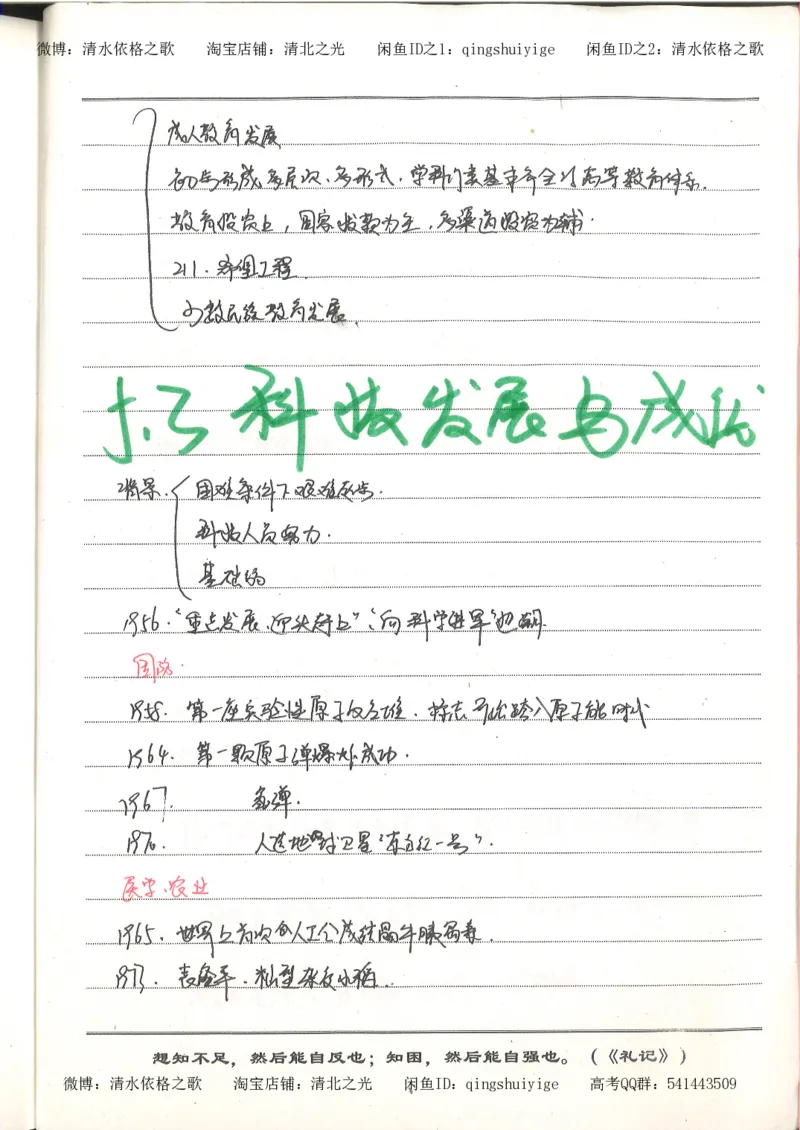 微博：清水依格之歌 淘宝店铺：清北之光 闲鱼ID之1：qingshuiyige 闲鱼ID之2：清水依格之歌
成人教育发展
初步形成多层次、多形式、学科门类基本齐全的高等教育体系.
教育投资上，国家拨款为主，多渠道投资为辅.
211.希望工程.
少数民族教育发展.
科技发展与成就
背景. 困难条件下艰难起步.
科技人员努力.
基础弱
1956."重点发展、迎头赶上""向科学进军"也朝.
国防.
1958. 第一座实验性原子反应堆. 标志开始跨入原子能时代
1964. 第一颗原子弹爆炸成功.
1967. 氢弹.
1970. 人造地球卫星"东方红一号".
医学、农业
1965. 世界上首次人工合成结晶牛胰岛素.
1973. 袁隆平. 籼型杂交水稻.
想知不足，然后能自反也；知困，然后能自强也。（《礼记》）
微博：清水依格之歌 淘宝店铺：清北之光 闲鱼ID：qingshuiyige 高考QQ群：541443509